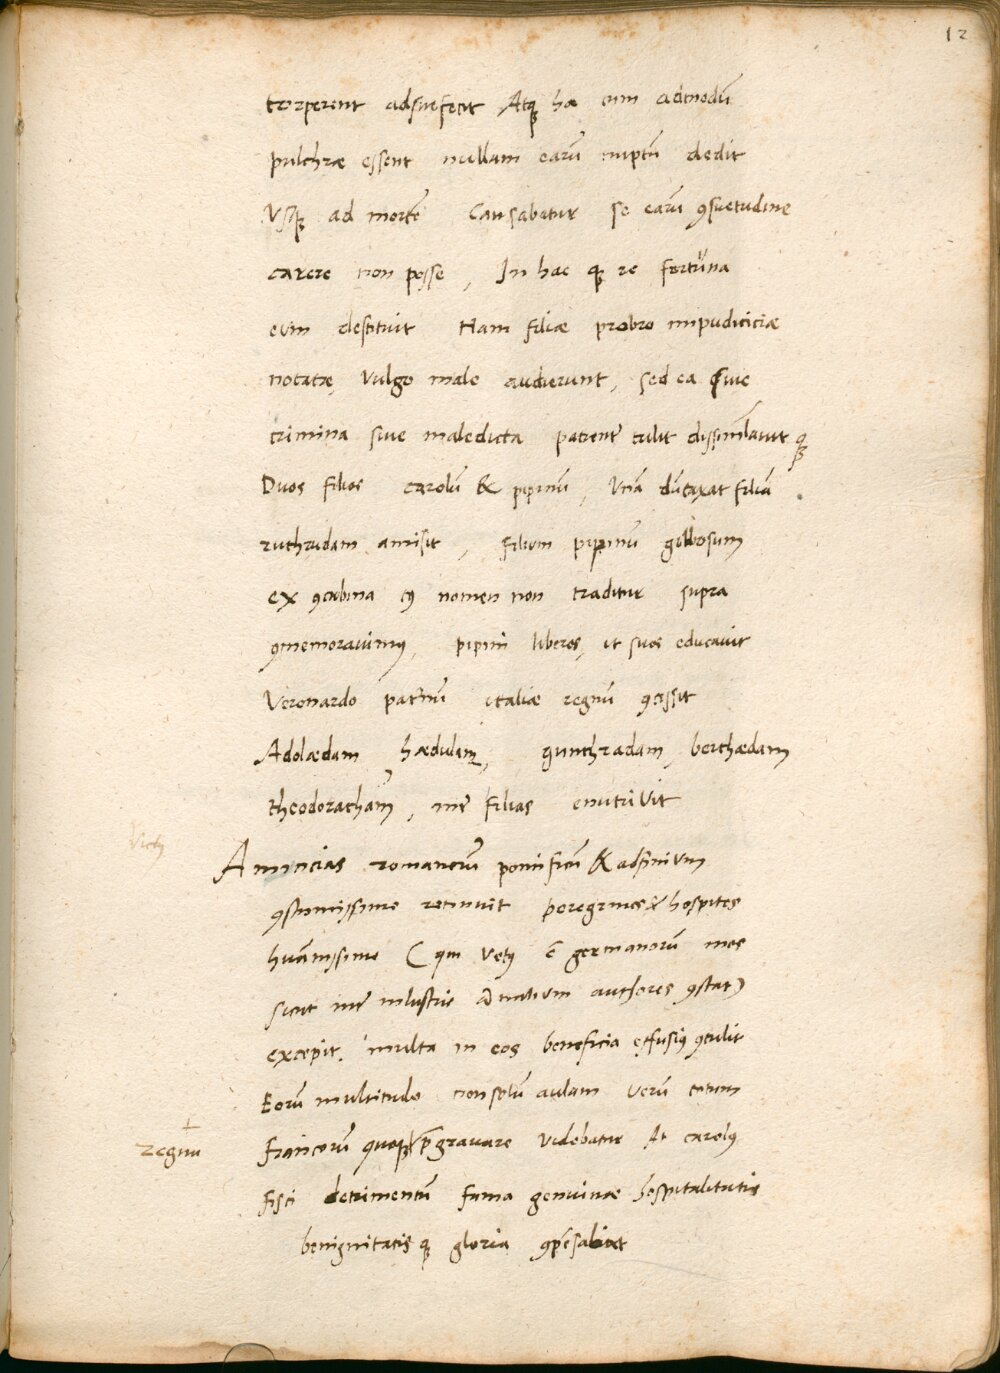 12
torperent adsuefecit Atqꝫ hæ cum admodū
pulchræ essent nullam earū nuptū dedit
Vsqꝫ ad mortē Causabatur se earū ꝯsuetudine
carere non posse, In hac qꝫ re fortuna
eum destituit Nam filiæ probro impudiciciæ
notatæ, Vulgo male audierunt, sed ea siue
crimina siue maledicta patient tulit dissimlauit qꝫ
Duos filios carolū & pipinū, Vnā dūtaxat filiā
ruthrudam amisit, filium pipinū gibbosum
ex ꝯcubina cꝰ nomen non traditur supra
ꝯmemorauimꝰ, pipini liberos, ut suos educauit
Verenardo patruū italiæ regnū ꝯcessit
Adolædam, hædulam, gunthradam, berthædam
theodoracham, inter filias enutriuit
Amicicias romanorū pontificū & adfinium
ꝯstantissime retinuit peregrinos & hospites
humanissime (qm vetꝰ ē germanorū mos
sicut inter illustris authores ꝯstat)
excepit. multa in eos beneficia effusiꝰ ꝯtulit
Eorū multitudo non solū aulam verū totum
regnū
francorū quoqꝫ p̄grauare videbatur At carolꝰ
fisci detrimentū fama genuinæ hospitalitatis
benignitatis qꝫ gloria ꝯpēsabat